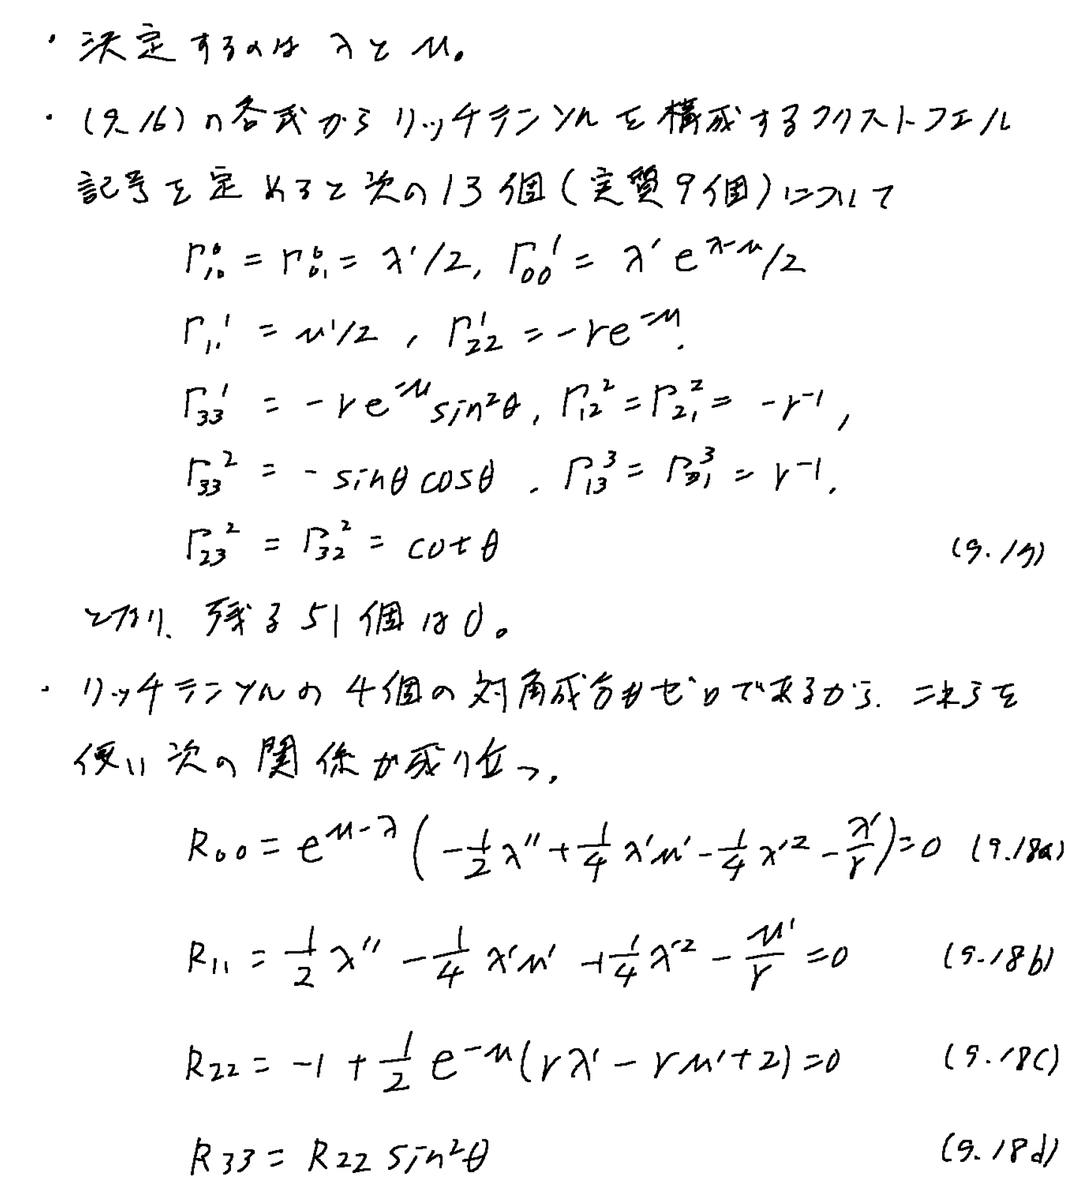 ・決定するのは λ と μ。
・(9.16)の各式からリッチテンソルを構成するクリストフェル
記号を定めると次の13個(実質9個)について
Γ₁₀⁰ = Γ₀₁⁰ = λ'/2, Γ₀₀¹ = λ' e^{λ-μ}/2
Γ₁₁¹ = μ'/2 , Γ₂₂¹ = -re^{-μ}.
Γ₃₃¹ = -re^{-μ} sin²θ, Γ₁₂² = Γ₂₁² = -r⁻¹,
Γ₃₃² = - sinθ cosθ . Γ₁₃³ = Γ₃₁³ = r⁻¹.
Γ₂₃² = Γ₃₂² = cot θ (9.17)
となり、残る51個は0。
・リッチテンソルの4個の対角成分もゼロであるから、これらを
使い次の関係が成り立つ.
R₀₀ = e^{μ-λ} ( -1/2 λ'' + 1/4 λ'μ' - 1/4 λ'² - λ'/r ) = 0 (9.18a)
R₁₁ = 1/2 λ'' - 1/4 λ'μ' + 1/4 λ'² - μ'/r = 0 (9.18b)
R₂₂ = -1 + 1/2 e^{-μ} (rλ' - rμ' + 2) = 0 (9.18c)
R₃₃ = R₂₂ sin²θ (9.18d)